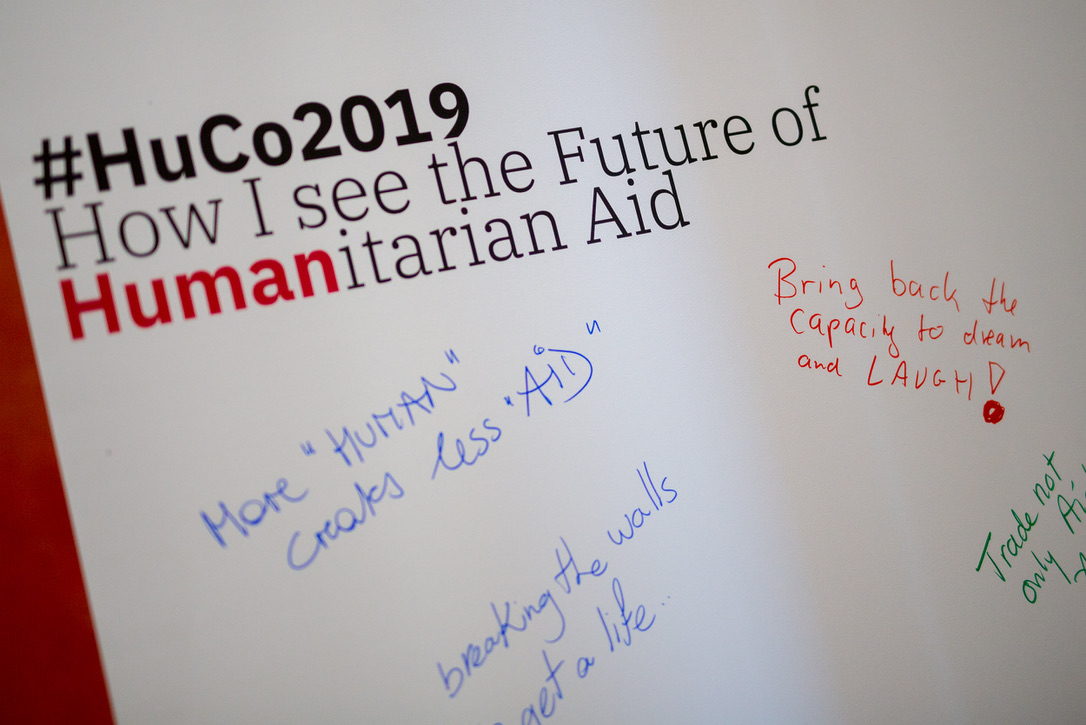 #HuCo2019
How I see the Future of
Humanitarian Aid
Bring back the
capacity to dream
and LAUGH!
More "HUMAN"
creates less "AID"
breaking the walls
get a life..
Trade not
only Ai